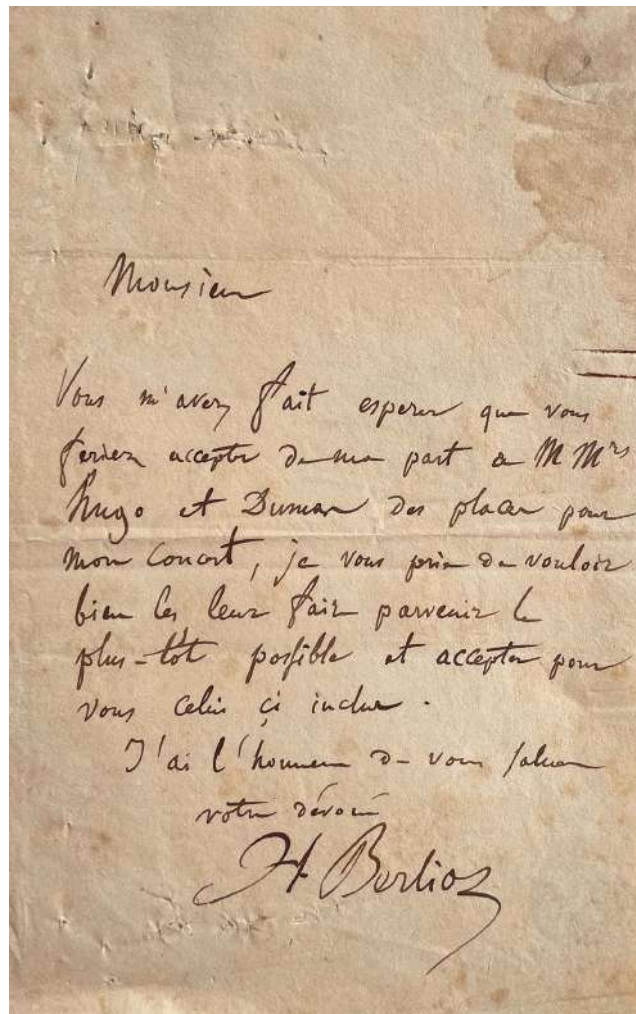 Monsieur
Vous m'avez fait esperer que vous
feriez accepter de ma part a MMrs
hugo et Dumas des places pour
mon Concert, je vous prie de vouloir
bien les leur faire parvenir le
plus-tôt possible et accepter pour
vous celui çi inclus.
J'ai l'honneur de vous saluer
votre dévoué
H Berlioz